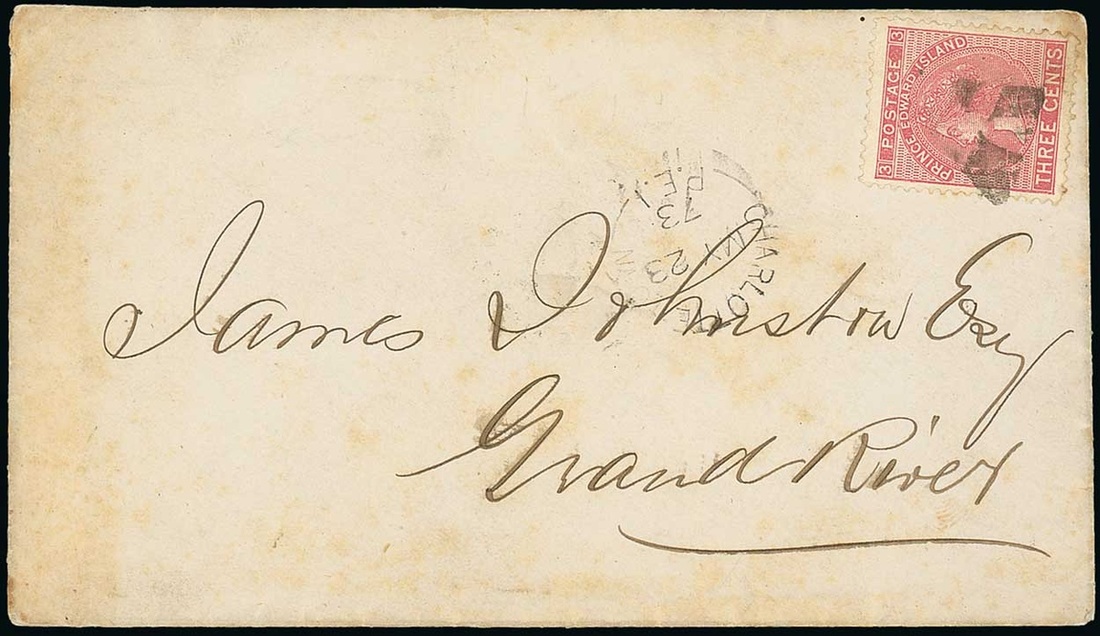 3 POSTAGE 3
PRINCE EDWARD ISLAND
THREE CENTS
CHARLOTTE
P.E.I.
MY 23
73
James Johnston Esq
Grand River